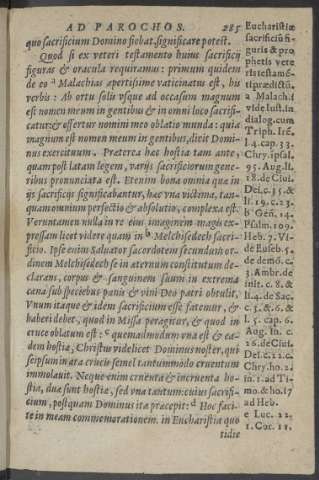 AD PAROCHOS. 285
quo sacrificium Domino fiebat, significare potest.
Quod si ex veteri testamento huius sacrificij
figuras & oracula requiramus: primum quidem
de eo a Malachias apertissime vaticinatus est, his
verbis: Ab ortu solis vsque ad occasum magnum
est nomen meum in gentibus & in omni loco sacrifi-
catur & offertur nomini meo oblatio munda: quia
magnum est nomen meum in gentibus, dicit Domi-
nus exercituum. Præterea hæc hostia tam ante,
quam post latam legem, varijs sacrificiorum gene-
ribus pronunciata est. Etenim bona omnia quæ in
ijs sacrificijs significabantur, hac vna victima, tan-
quam omnium perfectio & absolutio, complexa est.
Veruntamen nulla in re eius imaginem magis ex-
pressam licet videre quam in b Melchisedech sacri-
ficio. Ipse enim Saluator sacerdotem secundum or-
dinem Melchisedech se in æternum constitutum de-
clarans, corpus & sanguinem suum in extrema
cœna sub speciebus panis & vini Deo patri obtulit.
Vnum itaque & idem sacrificium esse fatemur, &
haberi debet, quod in Missa peragitur, & quod in
cruce oblatum est: c quemadmodum vna est & ea-
dem hostia, Christus videlicet Dominus noster, qui
seipsum in ara crucis semel tantummodo cruentum
immolauit. Neque enim cruenta & incruenta ho-
stia, duæ sunt hostiæ, sed vna tantum: cuius sacrifi-
cium, postquam Dominus ita præcepit: d Hoc faci-
te in meam commemorationem, in Eucharistia quo
tidie
Eucharistiæ
sacrificiū fi-
guris & pro
phetis vete
ris testamē-
ti prædictū.
a Malach.1
vide Iust. in
dialog. cum
Triph. Iré.
l.4. cap.33.
Chry. ipsal.
95. Aug. li.
18. de Ciui.
Dei. c.35. &
li.19. c.23.
b Gen. 14.
Psalm. 109.
Heb. 7. Vi-
de Euseb. 5.
de demō. c.
3. Ambr. de
init. c. 8. &
li.4. de Sac.
c.3.& .6. &
l.5. cap. 6.
Aug. in. c.
26. de Ciui.
Dei. c.22. c.
Chry. ho. 2.
in. 1. ad Ti-
mo. & ho. 17
ad Heb.
e Luc. 22,
1. Cor. 11.